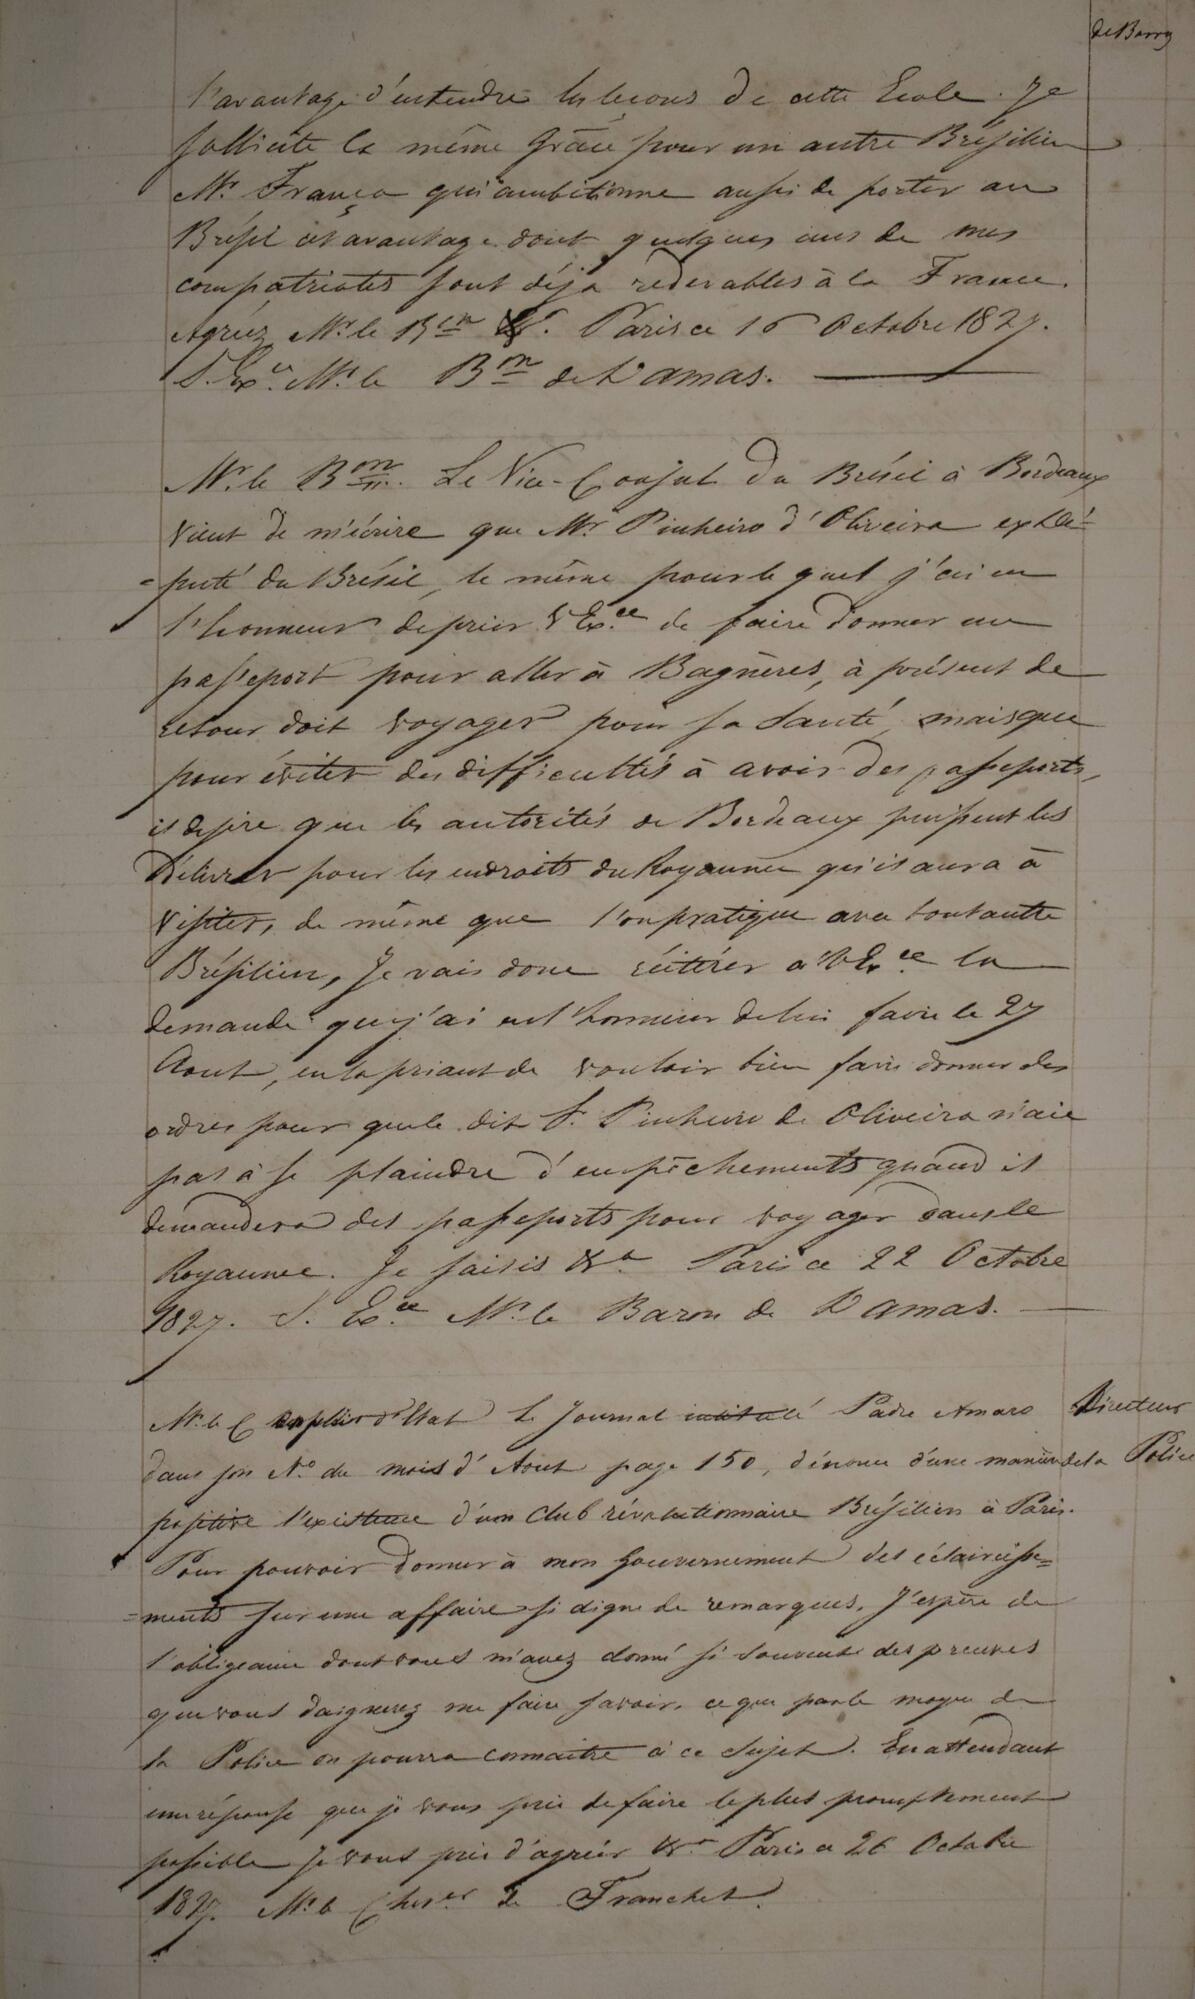 de Barry
l'avantage d'entendre les leçons de cette Ecole. Je
sollicite la même Grâce pour un autre Brésilien
Mr. França qui ambitionne aussi de porter au
Brésil cet avantage dont quelques uns de mes
compatriotes sont déjà redevables à la France.
Agréez Mr. le Bon &. Paris ce 16 Octobre 1827.
S. Exce. Mr. le Bon de Damas.
Mr. le Bon. Le Vice-Consul du Brésil à Bordeaux
vient de m'écrire que Mr. Pinheiro d'Oliveira ex Dé-
=puté du Brésil, le même pour le quel j'ai eu
l'honneur de prier V Exce de faire donner un
passeport pour aller à Bagnères, à présent de
retour doit voyager pour sa Santé, mais que
pour éviter des difficultés à avoir des passeports,
il desire que les autorités de Bordeaux puissent les
Délivrer pour les endroits du Royaume qu'il aura à
visiter, de même que l'on pratique avec tout autre
Brésilien, Je vais donc réitérer a V Exce la
demande que j'ai eu l'honneur de lui faire le 27
Aout, en la priant de vouloir bien faire donner des
ordres pour que le dit S. Pinheiro de Oliveira n'aie
pas à se plaindre d'empêchements quand il
demandera des passeports pour voyager dans le
Royaume. Je saisis &a Paris ce 22 Octobre
1827. S. Exce Mr. le Baron de Damas.
Mr. le C d'Etat Le Journal intitulé Padre Amaro Directeur
dans son No. du mois d'Aout page 150, dénonce d'une manière de la Police
positive l'existence d'un Club révolutionnaire Brésilien à Paris.
Pour pouvoir donner à mon Gouvernement des éclaircisse=
=ments sur une affaire si digne de remarques, J'espère de
l'obligeance dont vous m'avez donné si souvent des preuves
que vous daignerez me faire savoir, ce que par le moyen de
la Police on pourra connaitre à ce Sujet. En attendant
une réponse que je vous prie de faire le plus promptement
possible Je vous prie d'agréér &a Paris ce 26 Octobre
1827. Mr. le Cher. de Franchet.